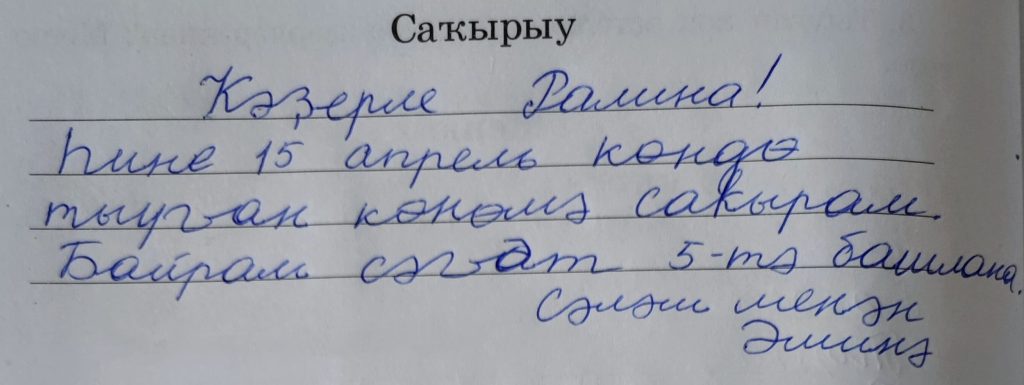 Саҡырыу
Кәҙерле Ралина!
Һине 15 апрель көндө
тыуған көнөмә саҡырам.
Байрам сәғәт 5-тә башлана.
Сәләм менән
Әминә